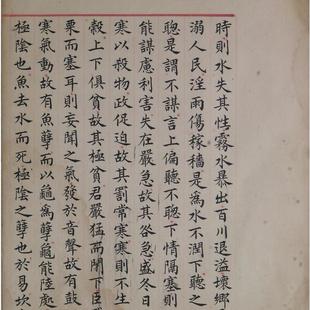 時則水失其性霧水暴出百川退溢壞鄉
溺人民淫雨傷稼穡是為水不潤下聽之
聰是謂不謀言上偏聽不聰下情隔塞則
能謀慮利害失在嚴急故其咎急盛冬日
寒以殺物政促迫故其罰常寒寒則不生
穀上下俱貧故其極貧君嚴猛而閉下臣
栗而塞耳則妄聞之氣發於音聲故有鼓
寒氣動故有魚孽而以龜為孽龜能陸處
極陰也魚去水而死極陰之孽也於易坎